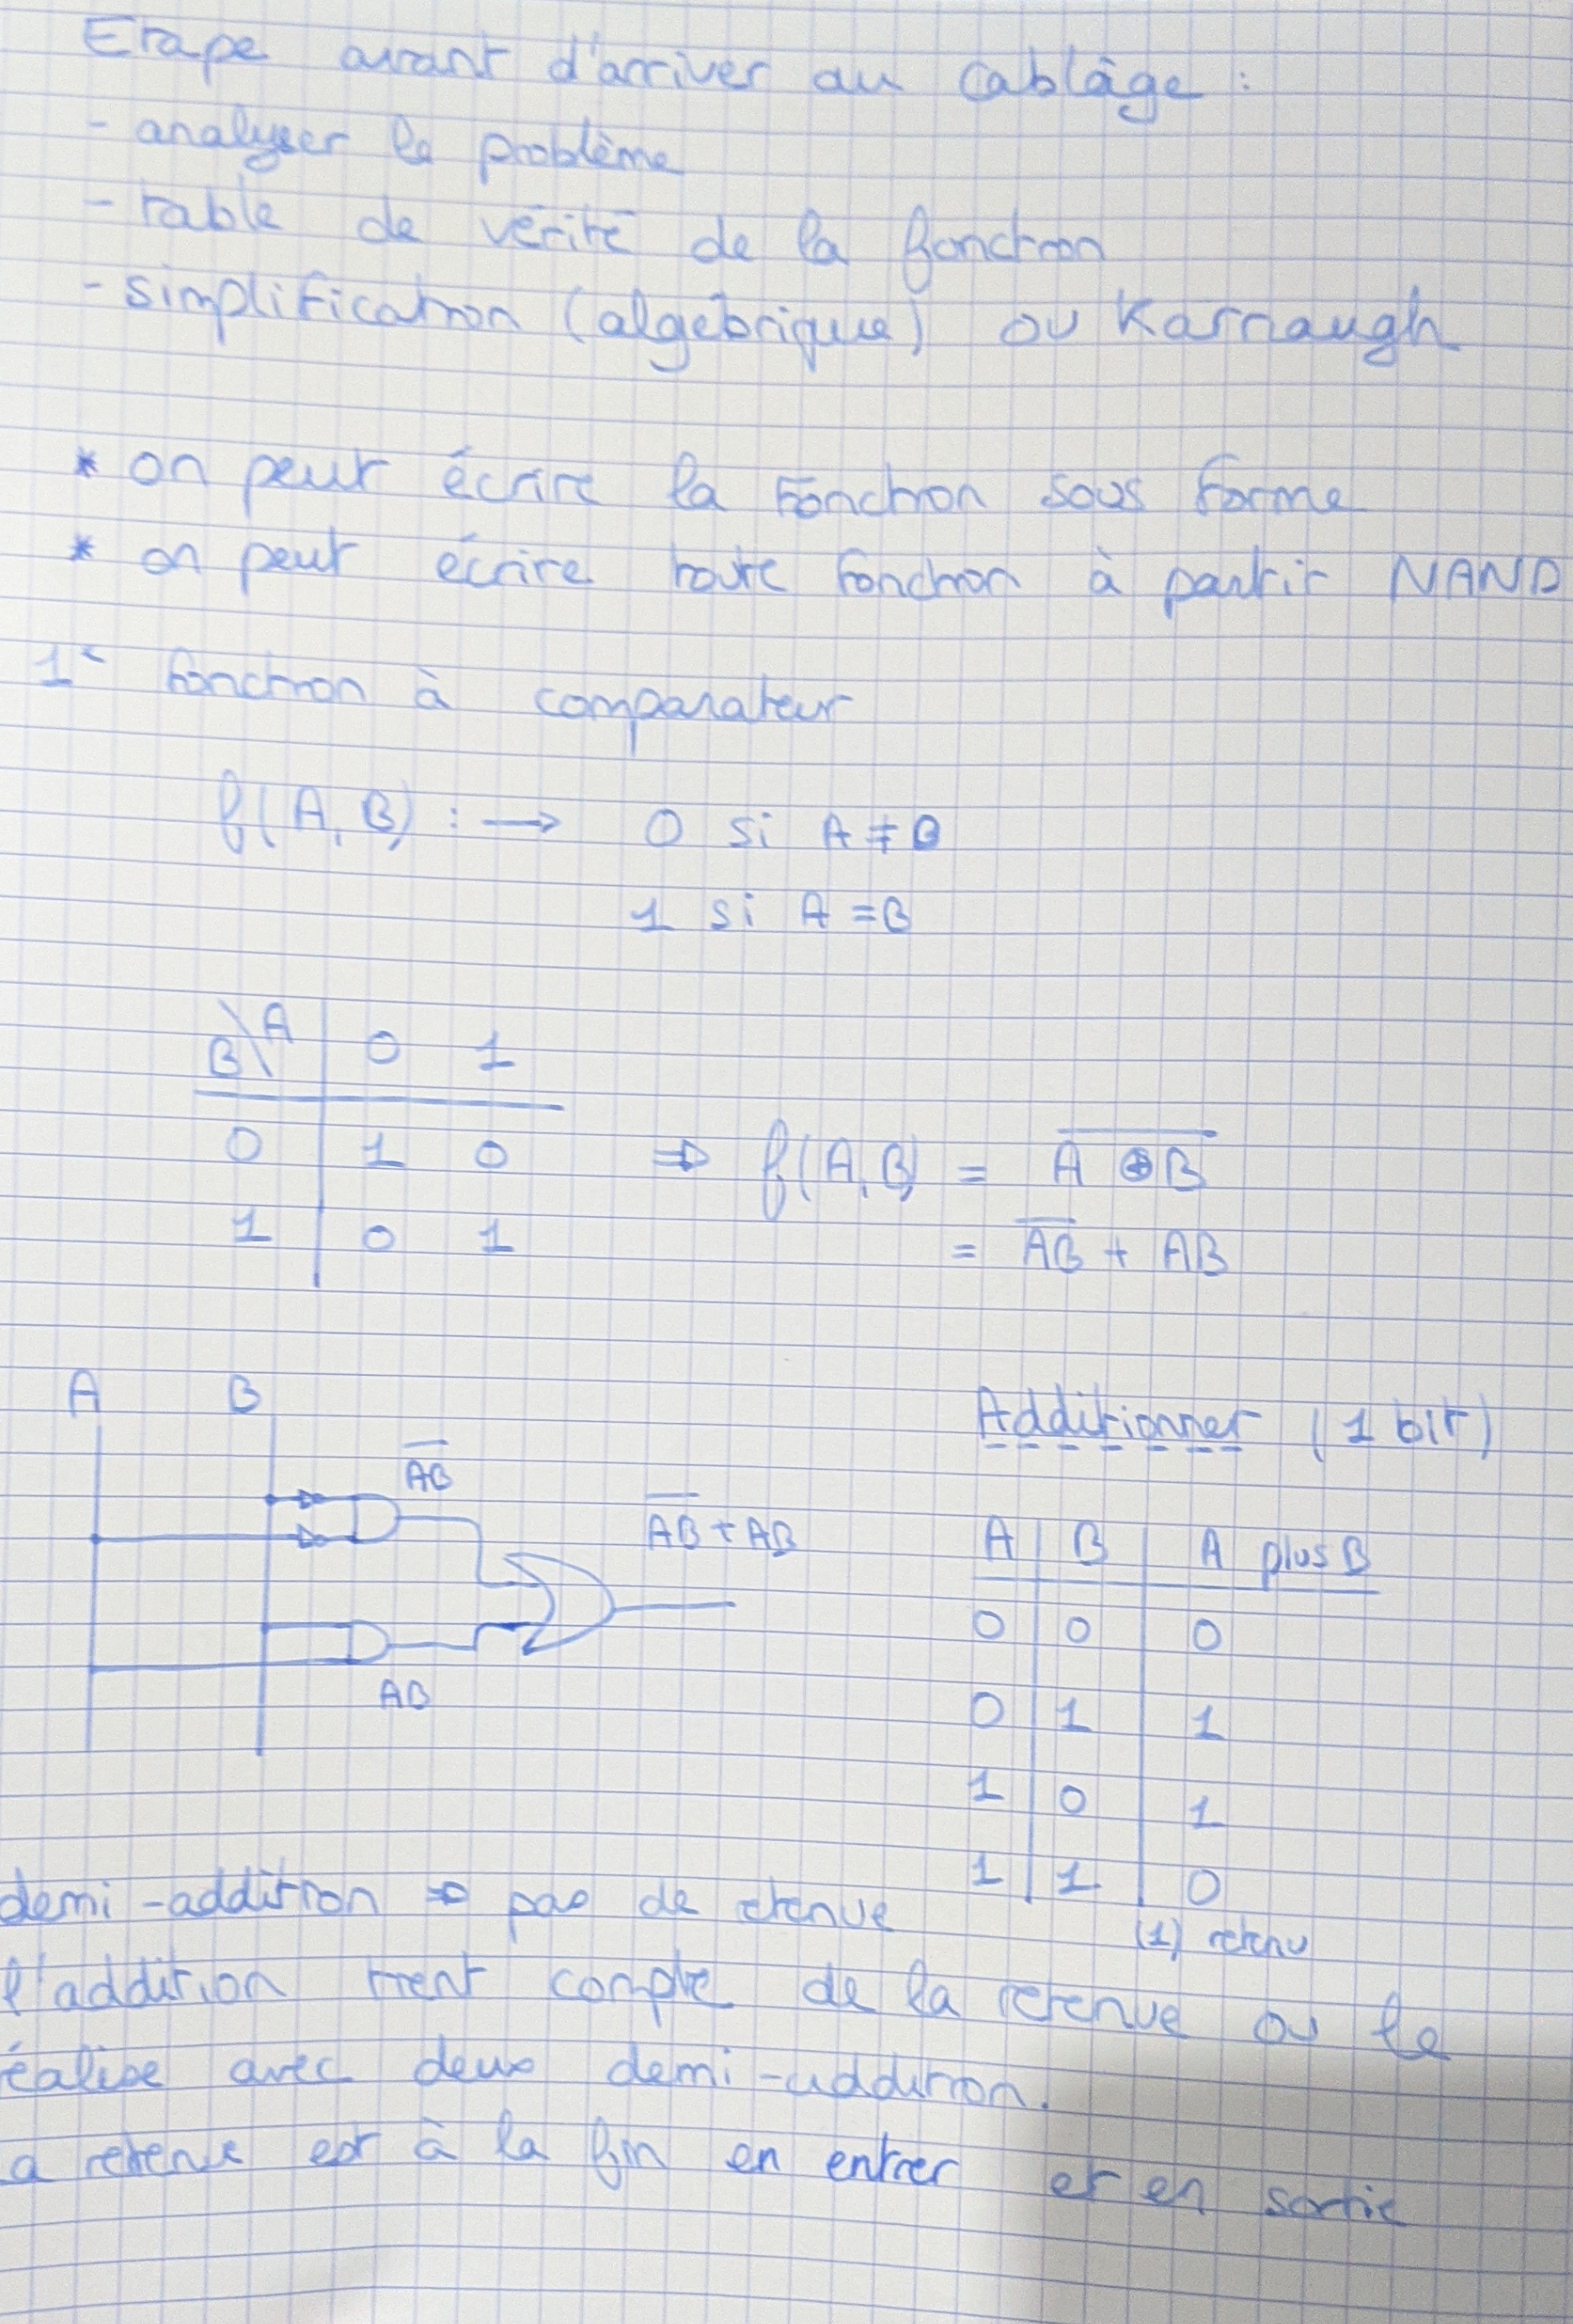 Etape avant d'arriver au cablâge :
- analyser le problème
- table de vérité de la fonction
- simplification (algébrique) ou Karnaugh
* on peut écrire la fonction sous forme
* on peut écrire toute fonction à partir NAND
1- fonction à comparateur
f(A, B) : → 0 si A ≠ B
1 si A = B
B\A | 0 1
0 | 1 0 ⇒ f(A,B) = \overline{A ⊕ B}
1 | 0 1 = \overline{AB} + AB
A B
\overline{AB}
\overline{AB} + AB
AB
Additionner (1 bit)
A | B | A plus B
0 | 0 | 0
0 | 1 | 1
1 | 0 | 1
1 | 1 | 0
(1) retenu
demi-addition ⇒ pas de retenue
l'addition tient compte de la retenue ou le
éalise avec deux demi-addition.
a retenue est à la fin en entrer et en sortie